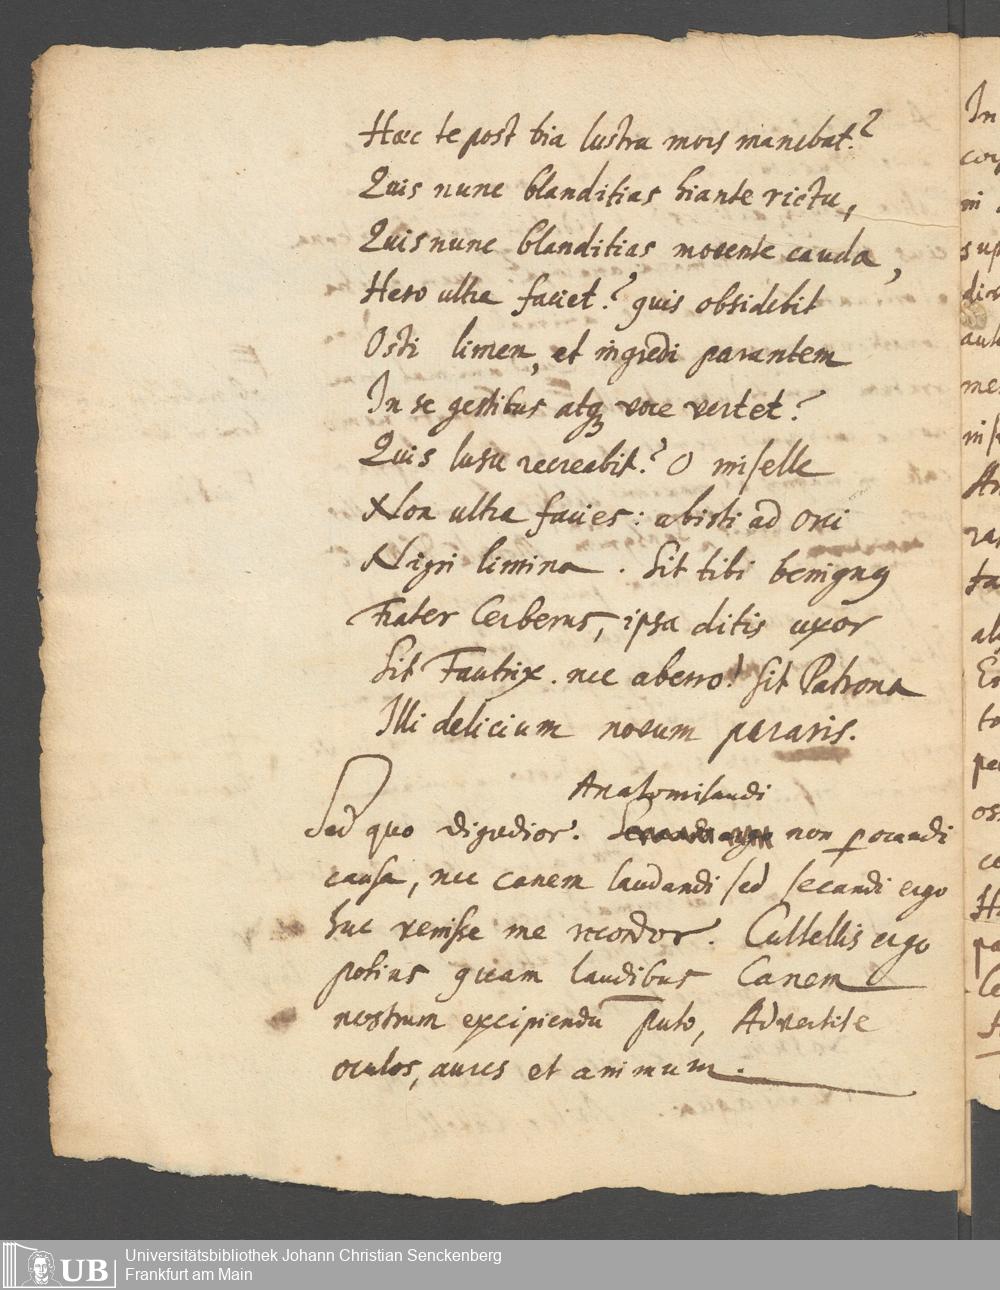 Hæc te post tria lustra mors manebat?
Quis nunc blanditias hiante rictu,
Quis nunc blanditias movente cauda,
Hero ultra faciet? quis obsidebit
Osti limen, et ingredi parantem
In se gestibus atq₃ voce vertet?
Quis lusu recreabit? O miselle
Non ultra facies: abisti ad Orci
Nigri limina. Sit tibi benignꝰ
Frater Cerberus, ipsa ditis uxor
Sit Fautrix. nec aberro! Sit Patrona
Illi delicium novum pararis.
Anatomisandi
Sed quo digredior. non ꝑorandi
causa, nec canem laudandi sed secandi ergo
huc venisse me recordor. Cultellis ergo
potius quam laudibus Canem
nostrum excipiendū puto, Advertite
oculos, aures et animum.
In
UB
Universitätsbibliothek Johann Christian Senckenberg
Frankfurt am Main